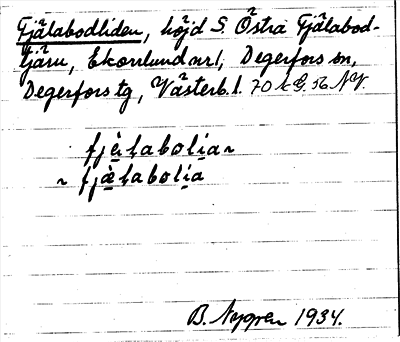 Fjälabodliden, höjd S. Östra Fjälabod-
tjärn, Ekorrlund nr 1, Degerfors sn,
Degerfors tg, Västerb. l. 70 k G. 56 NV.
fjè̱ḷaboli̱a ~
~ fjæ̱̀ḷaboli̱a
B. Nygren 1934.